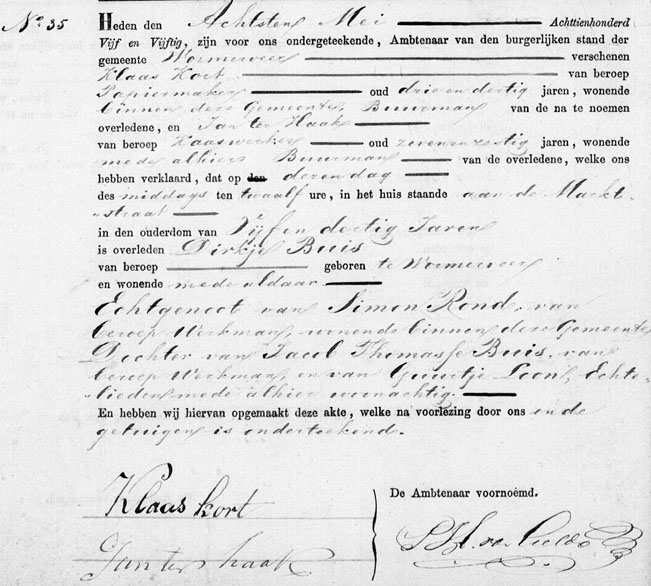 No 35 Heden den Achtsten Mei Achttienhonderd
Vijf en Vijftig, zijn voor ons ondergeteekende, Ambtenaar van den burgerlijken stand der
gemeente Wormerveer verschenen
Klaas Kort van beroep
Papiermaker oud drie en dertig jaren, wonende
binnen deze Gemeente, Buurman van de na te noemen
overledene, en Jan ter Haak
van beroep Kaaswerker oud zeven en zestig jaren, wonende
mede alhier Buurman van de overledene, welke ons
hebben verklaard, dat op den dezen dag
des middags ten twaalf ure, in het huis staande aan de Markt-
straat
in den ouderdom van Vijf en dertig Jaren
is overleden Dirkje Buis
van beroep geboren te Wormerveer
en wonende mede aldaar
Echtgenoot van Simon Rond, van
beroep Werkman, wonende binnen deze Gemeente
Dochter van Jacob Thomasse Buis, van
beroep Werkman, en van Guurtje Loon, Echte-
lieden mede alhier woonachtig.
En hebben wij hiervan opgemaakt deze akte, welke na voorlezing door ons en de
getuigen is onderteekend.
Klaas kort
Jan ter haak
De Ambtenaar voornoemd.